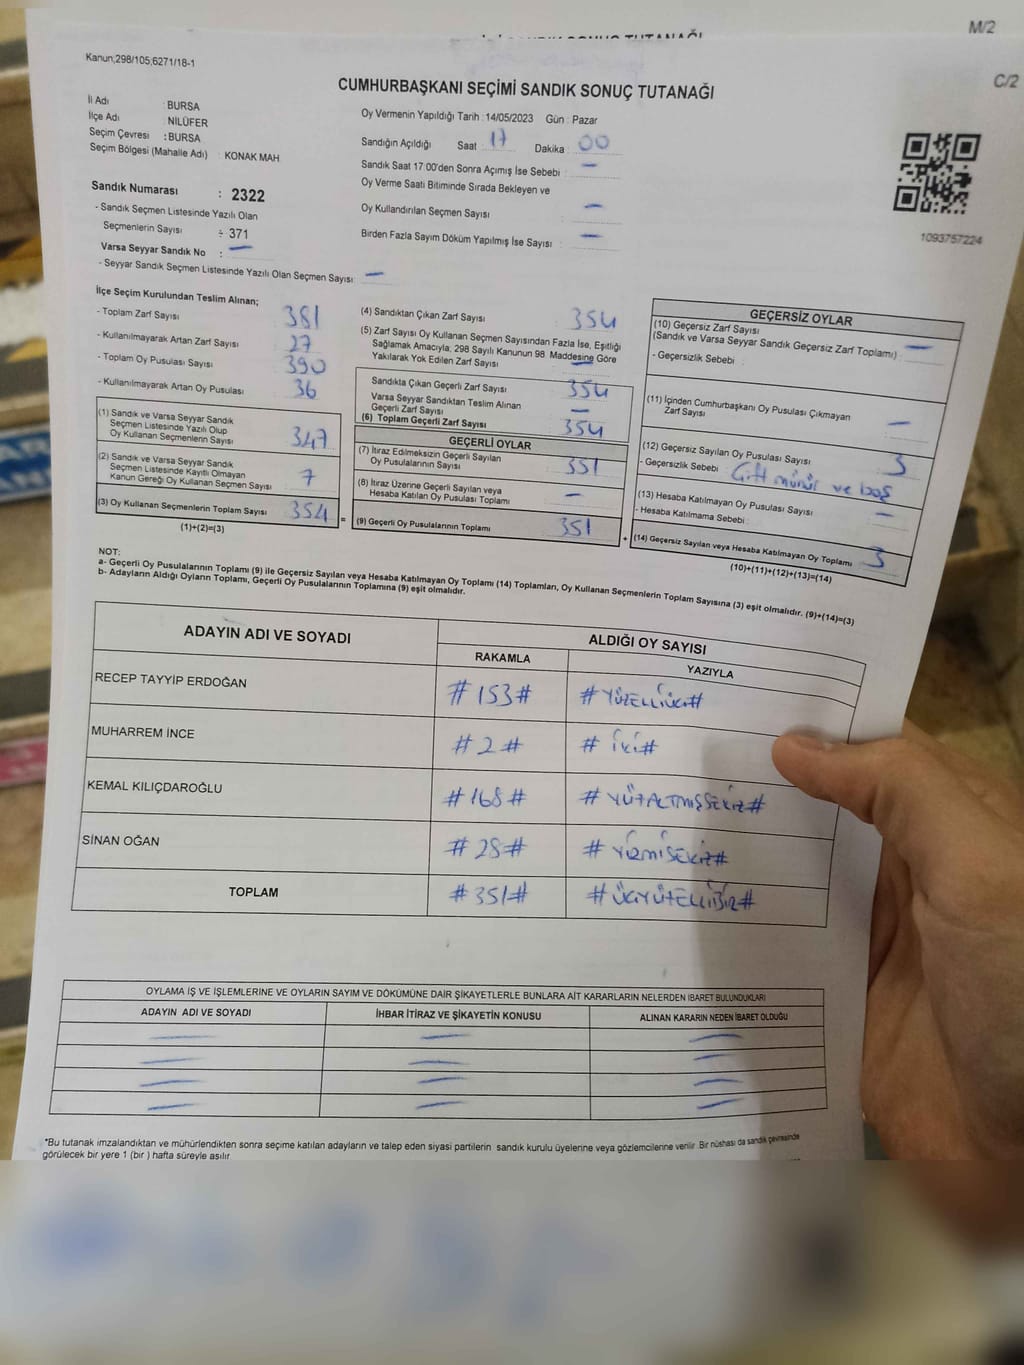 M/2
C/2
Kanun;298/105;6271/18-1
CUMHURBAŞKANI SEÇİMİ SANDIK SONUÇ TUTANAĞI
İl Adı : BURSA
İlçe Adı : NİLÜFER
Seçim Çevresi : BURSA
Seçim Bölgesi (Mahalle Adı) : KONAK MAH
Sandık Numarası : 2322
- Sandık Seçmen Listesinde Yazılı Olan
Seçmenlerin Sayısı : 371
Varsa Seyyar Sandık No : —
- Seyyar Sandık Seçmen Listesinde Yazılı Olan Seçmen Sayısı: —
Oy Vermenin Yapıldığı Tarih : 14/05/2023 Gün : Pazar
Sandığın Açıldığı Saat : 17 Dakika : 00
Sandık Saat 17:00'den Sonra Açımış İse Sebebi : —
Oy Verme Saati Bitiminde Sırada Bekleyen ve
Oy Kullandırılan Seçmen Sayısı : —
Birden Fazla Sayım Döküm Yapılmış İse Sayısı : —
1093757224
İlçe Seçim Kurulundan Teslim Alınan;
- Toplam Zarf Sayısı : 381
- Kullanılmayarak Artan Zarf Sayısı : 27
- Toplam Oy Pusulası Sayısı : 390
- Kullanılmayarak Artan Oy Pusulası : 36
(1) Sandık ve Varsa Seyyar Sandık
Seçmen Listesinde Yazılı Olup
Oy Kullanan Seçmenlerin Sayısı 347
(2) Sandık ve Varsa Seyyar Sandık
Seçmen Listesinde Kayıtlı Olmayan
Kanun Gereği Oy Kullanan Seçmen Sayısı 7
(3) Oy Kullanan Seçmenlerin Toplam Sayısı 354
(1)+(2)=(3)
=
(4) Sandıktan Çıkan Zarf Sayısı : 354
(5) Zarf Sayısı Oy Kullanan Seçmen Sayısından Fazla İse, Eşitliği
Sağlamak Amacıyla, 298 Sayılı Kanunun 98. Maddesine Göre
Yakılarak Yok Edilen Zarf Sayısı : —
Sandıkta Çıkan Geçerli Zarf Sayısı 354
Varsa Seyyar Sandıktan Teslim Alınan
Geçerli Zarf Sayısı —
(6) Toplam Geçerli Zarf Sayısı 354
GEÇERLİ OYLAR
(7) İtiraz Edilmeksizin Geçerli Sayılan
Oy Pusulalarının Sayısı 351
(8) İtiraz Üzerine Geçerli Sayılan veya
Hesaba Katılan Oy Pusulası Toplamı —
(9) Geçerli Oy Pusulalarının Toplamı 351
+
GEÇERSİZ OYLAR
(10) Geçersiz Zarf Sayısı
(Sandık ve Varsa Seyyar Sandık Geçersiz Zarf Toplamı) : —
- Geçersizlik Sebebi :
(11) İçinden Cumhurbaşkanı Oy Pusulası Çıkmayan
Zarf Sayısı —
(12) Geçersiz Sayılan Oy Pusulası Sayısı 3
- Geçersizlik Sebebi : Çift mühür ve boş
(13) Hesaba Katılmayan Oy Pusulası Sayısı —
- Hesaba Katılmama Sebebi :
(14) Geçersiz Sayılan veya Hesaba Katılmayan Oy Toplamı 3
(10)+(11)+(12)+(13)=(14)
NOT:
a- Geçerli Oy Pusulalarının Toplamı (9) ile Geçersiz Sayılan veya Hesaba Katılmayan Oy Toplamı (14) Toplamları, Oy Kullanan Seçmenlerin Toplam Sayısına (3) eşit olmalıdır. (9)+(14)=(3)
b- Adayların Aldığı Oyların Toplamı, Geçerli Oy Pusulalarının Toplamına (9) eşit olmalıdır.
ADAYIN ADI VE SOYADI ALDIĞI OY SAYISI
RAKAMLA YAZIYLA
RECEP TAYYİP ERDOĞAN #153# #YÜZELLİÜÇ#
MUHARREM İNCE #2# #İKİ#
KEMAL KILIÇDAROĞLU #168# #YÜZALTMIŞSEKİZ#
SİNAN OĞAN #28# #YİRMİSEKİZ#
TOPLAM #351# #ÜÇYÜZELLİBİR#
OYLAMA İŞ VE İŞLEMLERİNE VE OYLARIN SAYIM VE DÖKÜMÜNE DAİR ŞİKAYETLERLE BUNLARA AİT KARARLARIN NELERDEN İBARET BULUNDUKLARI
ADAYIN ADI VE SOYADI İHBAR İTİRAZ VE ŞİKAYETİN KONUSU ALINAN KARARIN NEDEN İBARET OLDUĞU
*Bu tutanak imzalandıktan ve mühürlendikten sonra seçime katılan adayların ve talep eden siyasi partilerin sandık kurulu üyelerine veya gözlemcilerine verilir. Bir nüshası da sandık çevresinde
görülecek bir yere 1 (bir) hafta süreyle asılır.